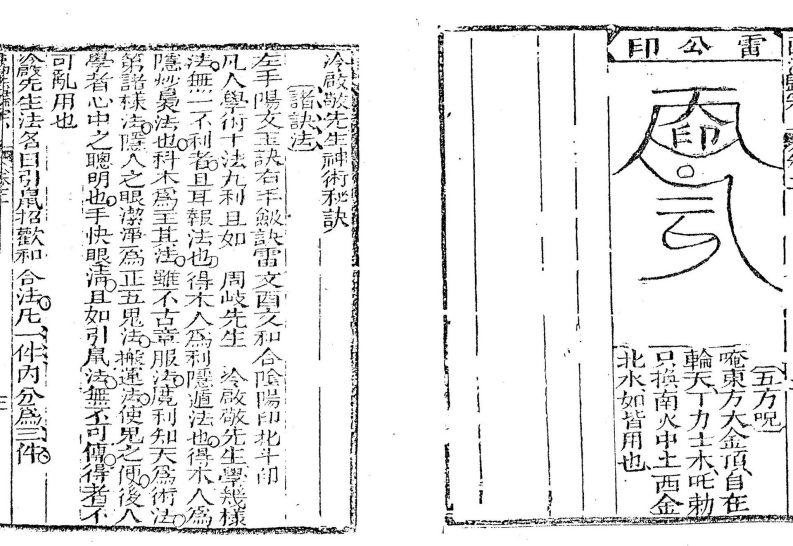 雷公印
印
五方呪
唵東方大金頂自在
輪天丁力士木吒勅
只換南火中土西金
北水如皆用也
冷啟敬先生神術秘訣
諸訣法
左手陽文玉訣右手訣雷文酉文和合陰陽印北斗印
凡人學術十法九利且如 周岐先生 冷啟敬先生學幾樣
法無一不利者且耳報法也得木人為利隱遁法也得木人為
隱妙法也科木為主其法雖不古章服法利知天為術法
第諸樣法隱人之眼潔淨為正五鬼法搬運法使鬼之便後人
學者心中之聰明也手快眼清且如引鼠法無不可傳得者不
可亂用也
冷啟先生法名曰引鼠招歡和合法凡一件內分為三件